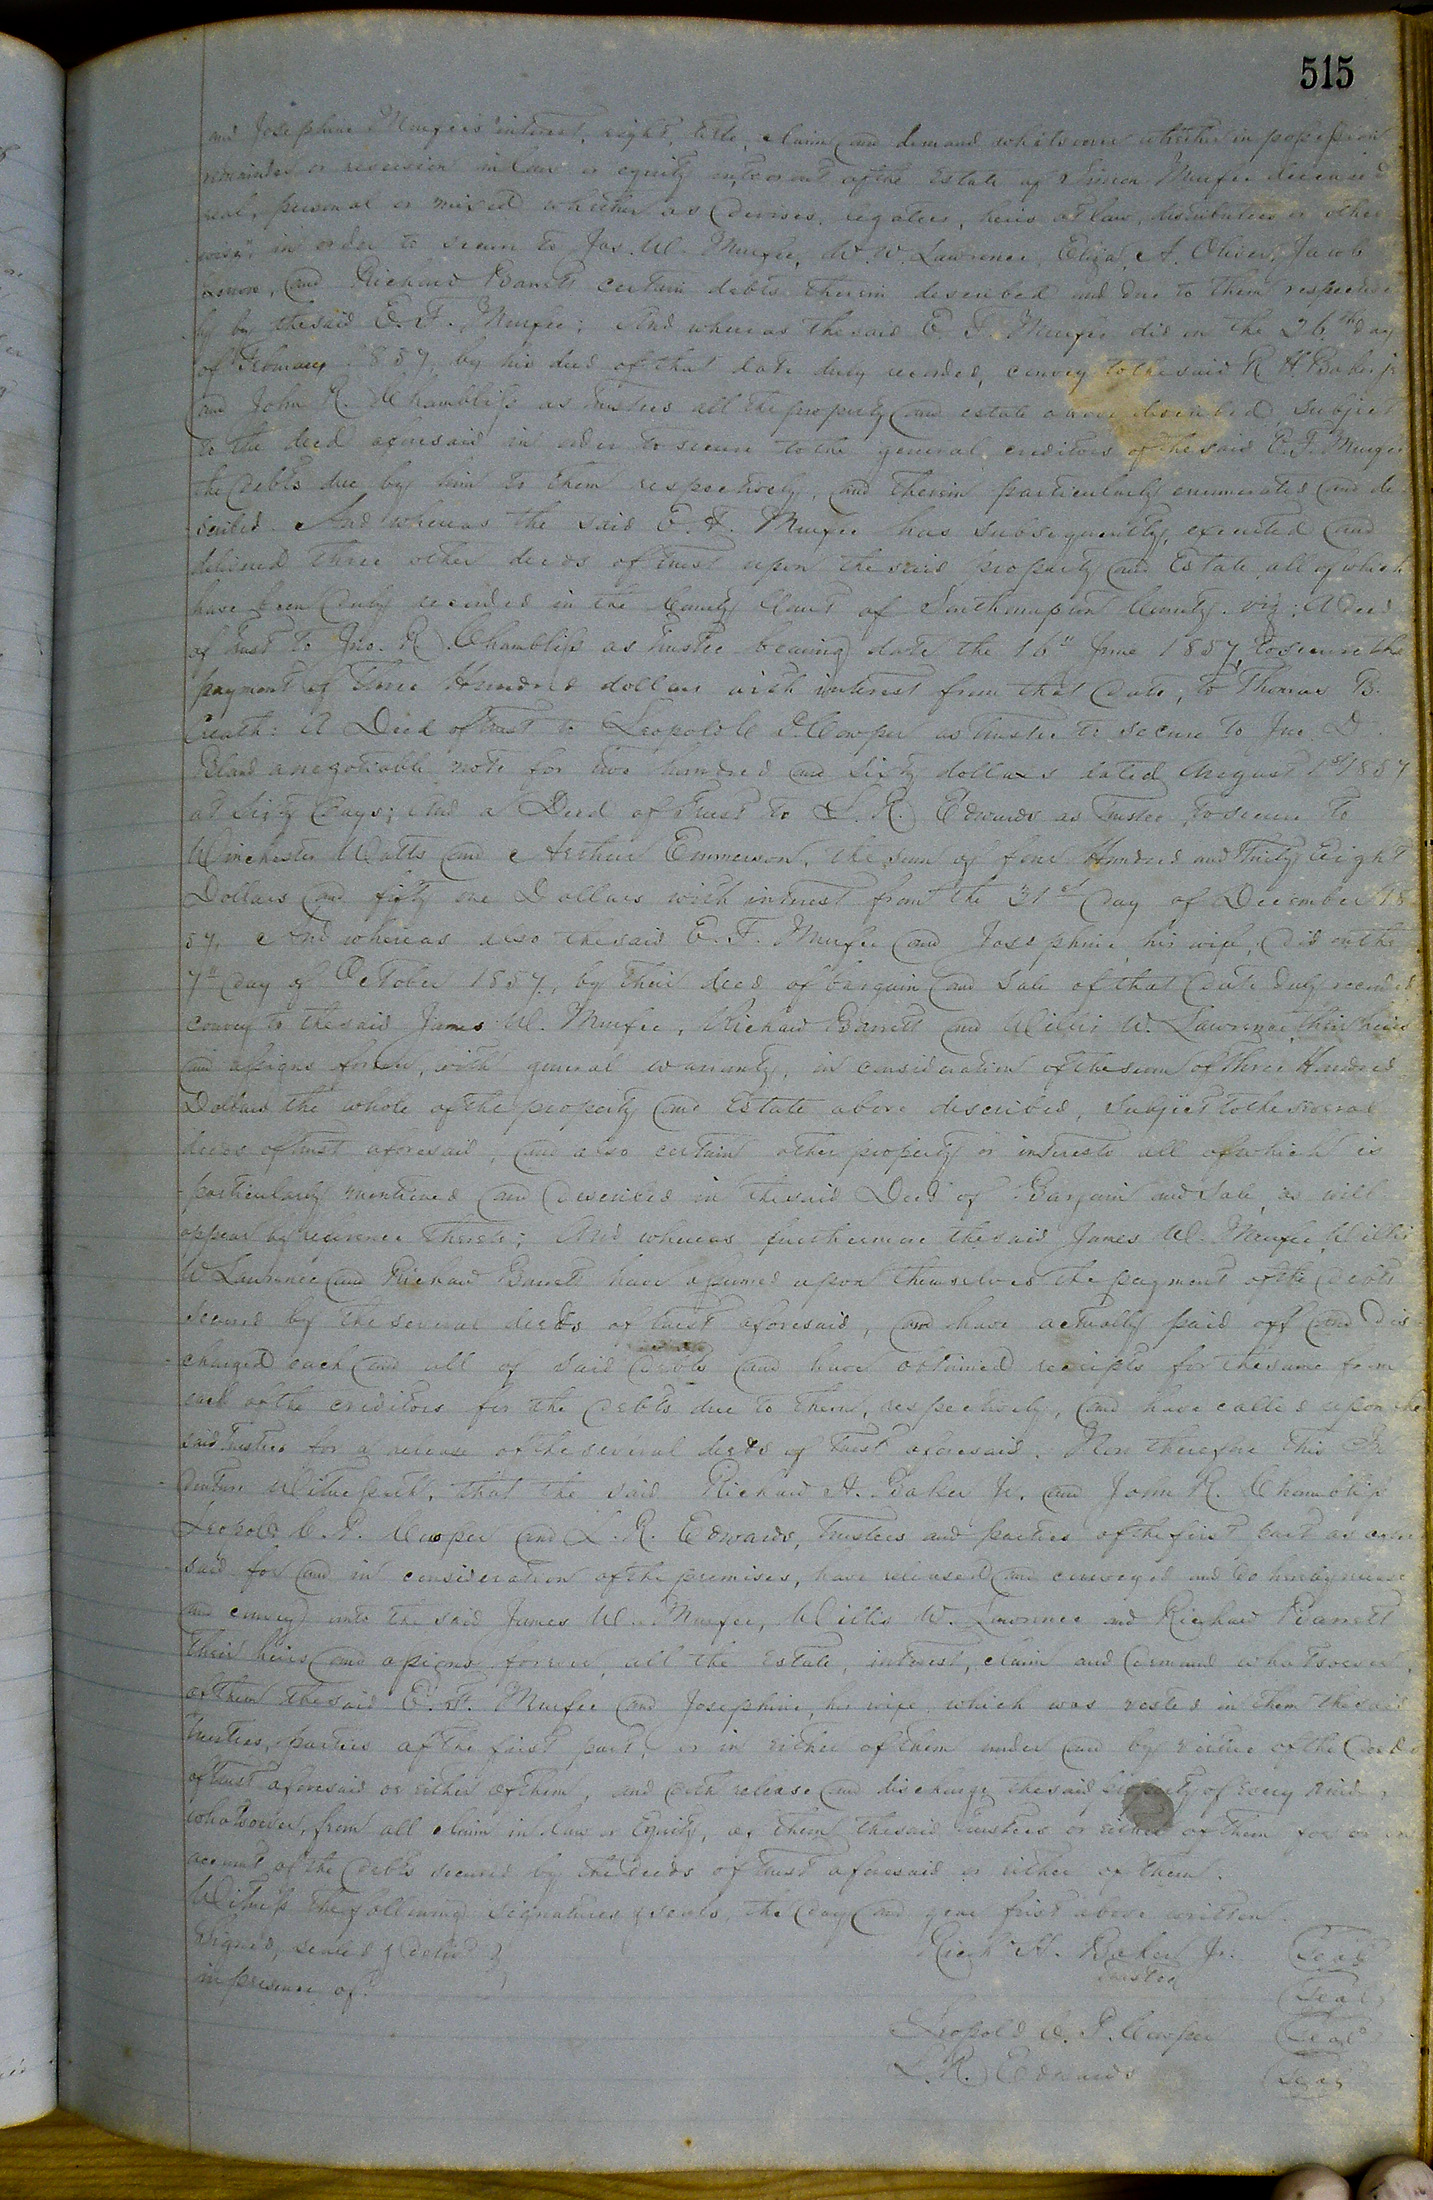 515
and Josephine Murfee's interest, right, title, claim and demand whatsoever whether in possession
remainder or reversion in law or equity into or out of the Estate of Simon Murfee deceased
real, personal or mixed whether as devisees, legatees, heirs at law, distributees or other
wise"; in order to secure to Jas. W. Murfee, W. W. Lawrence, Eliza A. Oliver, Jacob
and Richard Barrett certain debts therein described and due to them respective
ly by the said E. F. Murfee; And whereas the said E. F. Murfee did on the 26th day
of February 1857, by his deed of that date duly recorded, convey to the said R. H. Baker jr
and John R. Chambliss as Trustees all the property and estate above described subject
to the deed aforesaid in order to secure to the general creditors of the said E. F. Murfee
the debts due by him to them respectively, and therein particularly enumerated and de
scribed. And whereas the said E. F. Murfee has subsequently, executed and
delivered three other deeds of trust upon the said property and Estate, all of which
have been duly recorded in the County Court of Southampton County. viz; A deed
of trust to Jno. R. Chambliss as trustee bearing date the 16th June 1857, to secure the
payment of Three Hundred dollars with interest from that date, to Thomas B.
Creath: A Deed of Trust to Leopold C. P. Cowper as trustee to secure to Jno. D.
Bland a negotiable note for two hundred and sixty dollars dated August 1st 1857
at sixty days; And a Deed of Trust to L. R. Edwards as Trustee to secure to
Winchester Watts and Arthur Emmerson, the sum of four Hundred and Thirty Eight
Dollars and fifty one Dollars with interest from the 31st day of December 18
57. And whereas also the said E. F. Murfee and Josephine his wife, did on the
7th day of October 1857, by their deed of bargain and sale of that date duly recorded
convey to the said James W. Murfee, Richard Barrett and Willis W. Lawrence, their heirs
and assigns forever, with general warranty, in consideration of the sum of Three Hundred
Dollars the whole of the property and Estate above described, subject to the several
deeds of trust aforesaid, and also certain other property or interests all of which is
particularly mentioned and described in the said Deed of Bargain and Sale, as will
appear by reference thereto; And whereas furthermore the said James W. Murfee, Willis
W Lawrence and Richard Barrett have assumed upon themselves the payment of the debts
secured by the several deeds of trust aforesaid, and have actually paid off and dis
charged each and all of said debts and have obtained receipts for the same from
each of the creditors for the debts due to them, respectively, and have called upon the
said Trustees for a release of the several deeds of trust aforesaid. Now therefore this In
denture Witnesseth, that the said Richard H. Baker Jr. and John R. Chambliss
Leopold C. P. Cowper and L. R. Edwards, Trustees and parties of the first part as afore
said for and in consideration of the premises, have released and conveyed and do hereby release
and convey unto the said James W. Murfee, Willis W. Lawrence and Richard Barrett
their heirs and assigns forever, all the Estate, interest, claim and demand whatsoever,
of them the said E. F. Murfee and Josephine, his wife, which was vested in them the said
Trustees, parties of the first part, or in either of them under and by virtue of the deeds
of trust aforesaid or either of them, and doth release and discharge the said property of every kind
whatsoever, from all claim in Law or Equity, of them the said Trustees or either of them for or on
account of the debts secured by the deeds of trust aforesaid or either of them.
Witness the following signatures & seals, the day and year first above written.
Signed, sealed & delivd Rich'd H. Baker Jr. Seal
in presence of Trustee
Seal
Leopold C. P. Cowper Seal
L. R. Edwards Seal